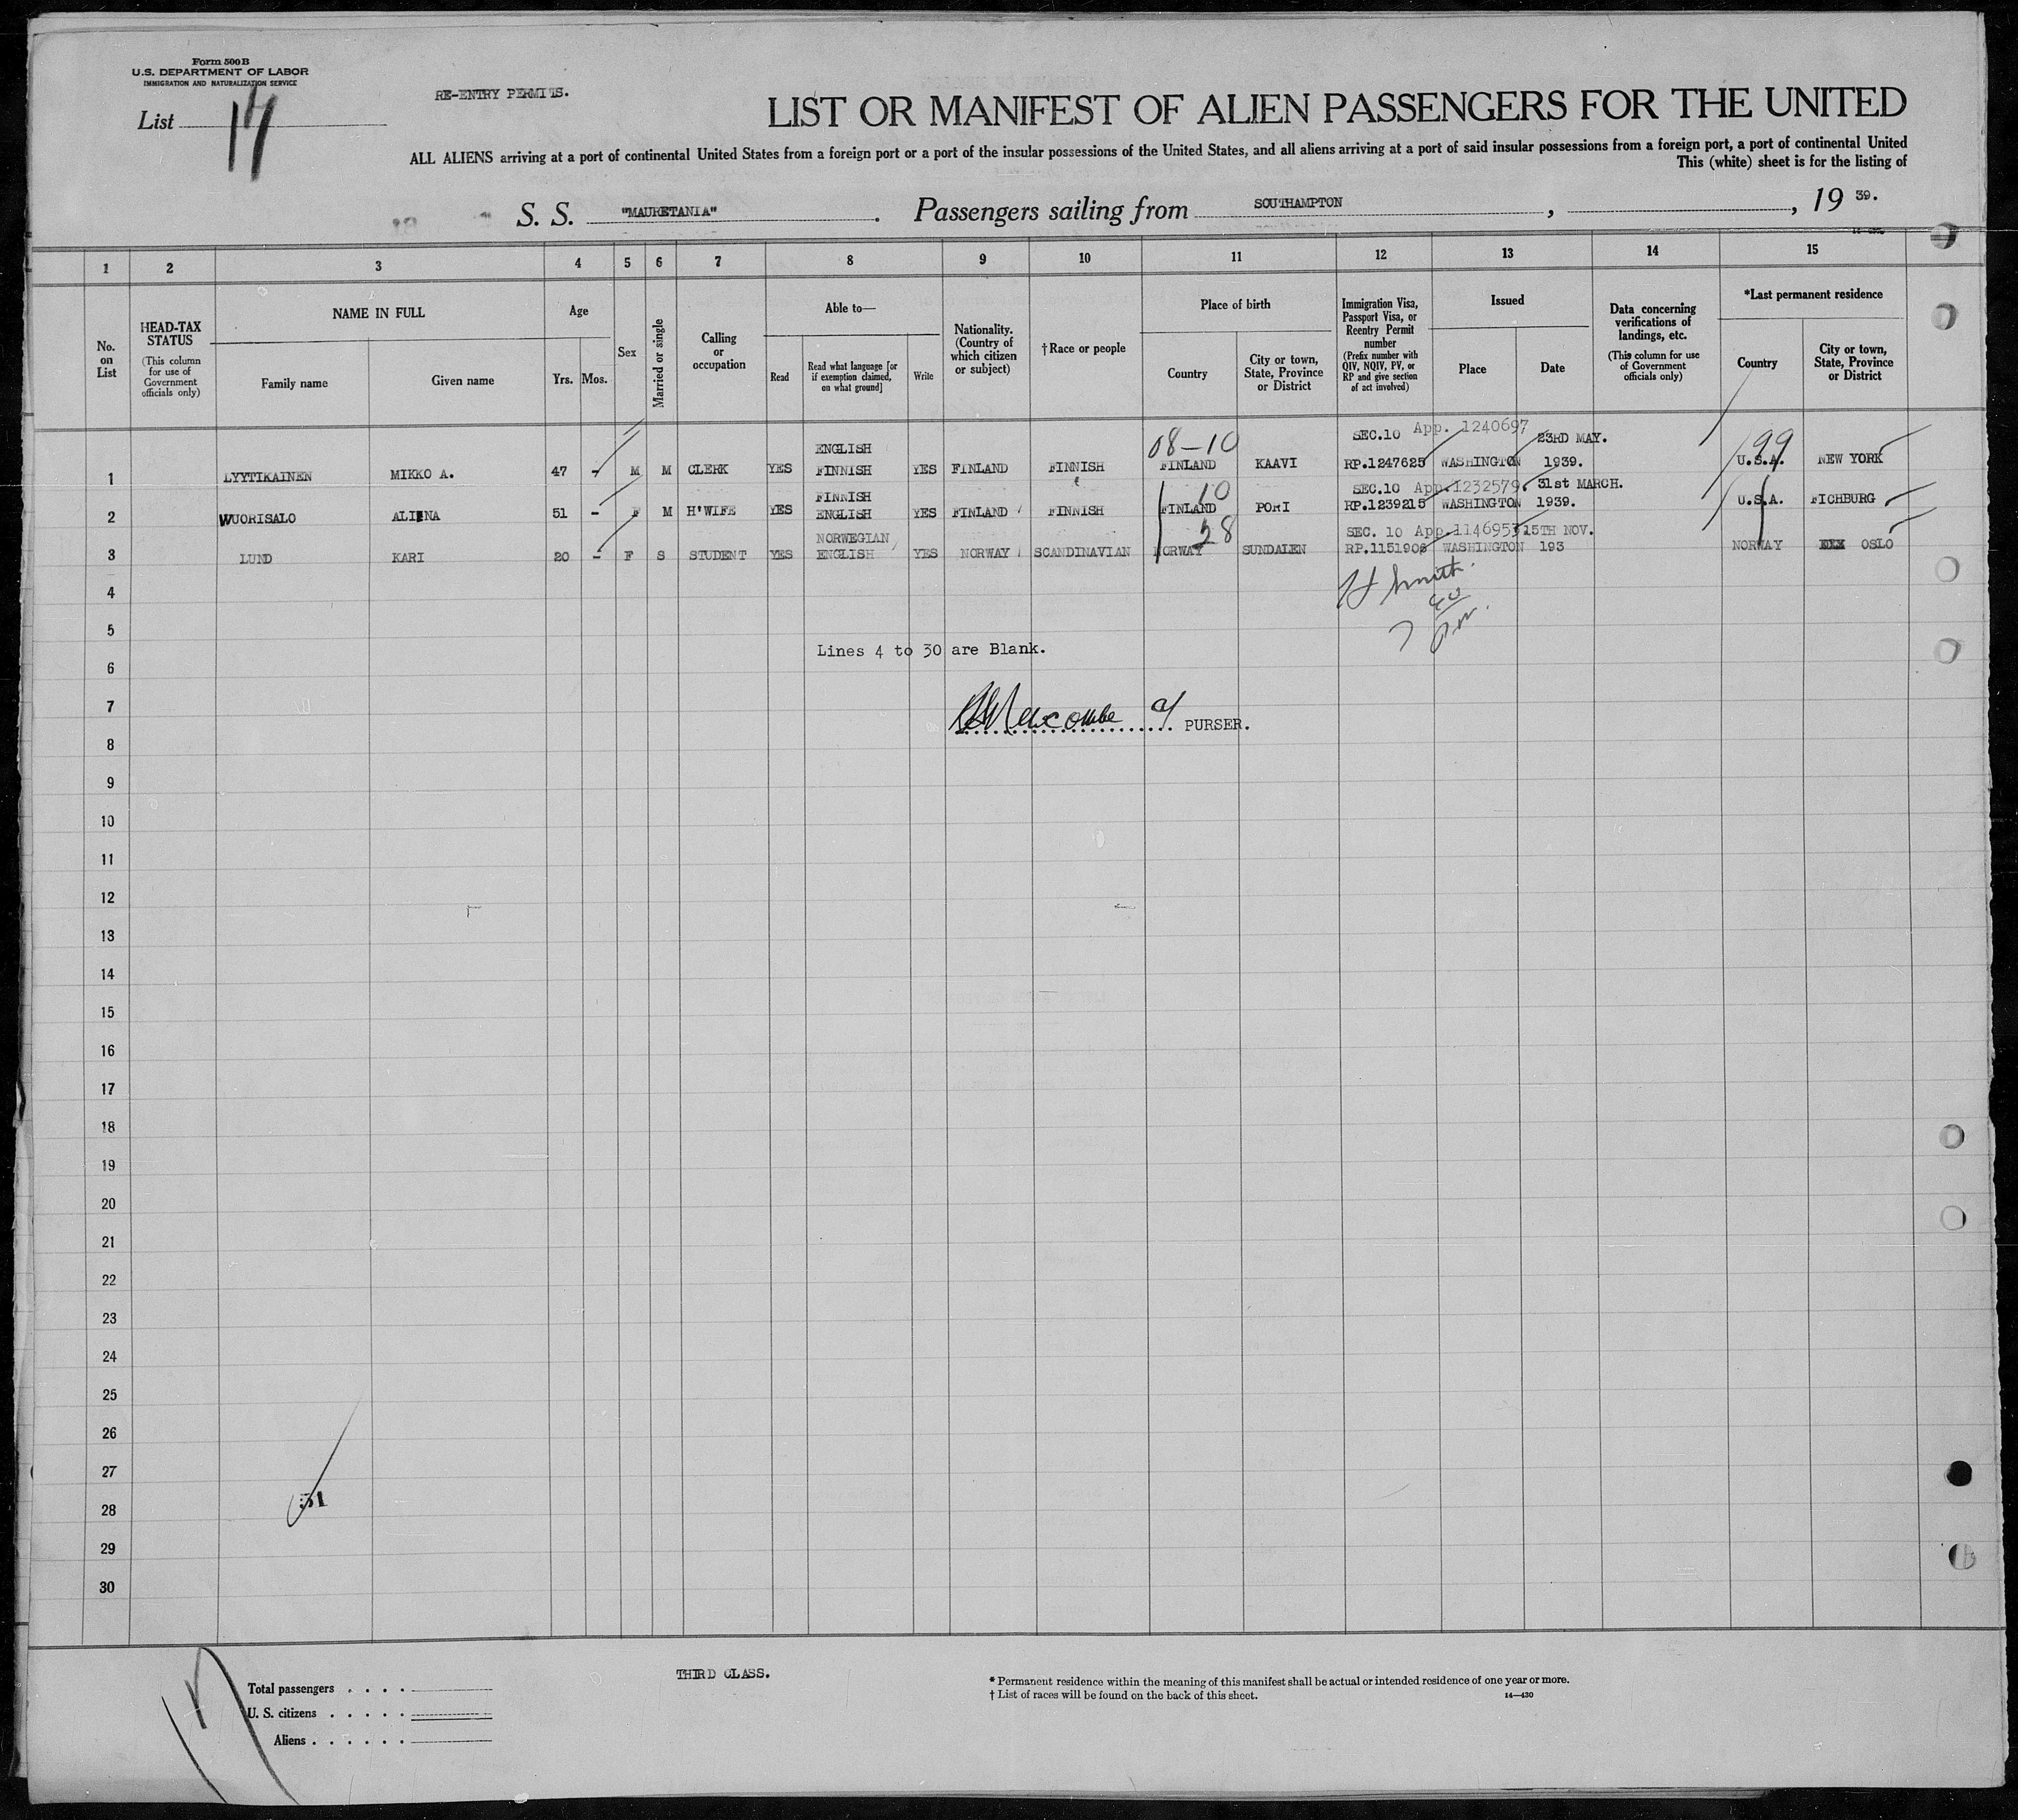 Form 500 B
U.S. DEPARTMENT OF LABOR
IMMIGRATION AND NATURALIZATION SERVICE
List 17
RE-ENTRY PERMITS.
LIST OR MANIFEST OF ALIEN PASSENGERS FOR THE UNITED
ALL ALIENS arriving at a port of continental United States from a foreign port or a port of the insular possessions of the United States, and all aliens arriving at a port of said insular possessions from a foreign port, a port of continental United
This (white) sheet is for the listing of
S. S. "MAURETANIA" . Passengers sailing from SOUTHAMPTON , , 19 39.
1 2 3 4 5 6 7 8 9 10 11 12 13 14 15
No. on List
HEAD-TAX STATUS (This column for use of Government officials only)
NAME IN FULL
Family name Given name
Age
Yrs. Mos.
Sex
Married or single
Calling or occupation
Able to—
Read
Read what language [or if exemption claimed, on what ground]
Write
Nationality. (Country of which citizen or subject)
†Race or people
Place of birth
Country
City or town, State, Province or District
Immigration Visa, Passport Visa, or Reentry Permit number (Prefix number with QIV, NQIV, PV, or RP and give section of act involved)
Issued
Place Date
Data concerning verifications of landings, etc. (This column for use of Government officials only)
*Last permanent residence
Country
City or town, State, Province or District
ENGLISH 08-10 SEC.10 App. 1240697 23RD MAY. 99
1 LYYTIKAINEN MIKKO A. 47 - M M CLERK YES FINNISH YES FINLAND FINNISH FINLAND KAAVI RP.1247625 WASHINGTON 1939. U.S.A. NEW YORK
FINNISH 10 SEC.10 App.1232579. 31st MARCH.
2 WUORISALO ALINA 51 - F M H'WIFE YES ENGLISH YES FINLAND FINNISH FINLAND PORI RP.1239215 WASHINGTON 1939. U.S.A. FICHBURG
NORWEGIAN 28 SEC. 10 App.1146953 15TH NOV.
3 LUND KARI 20 - F S STUDENT YES ENGLISH YES NORWAY SCANDINAVIAN NORWAY SUNDALEN RP.1151906 WASHINGTON 193 NORWAY OSLO
4
H Smith.
5
Lines 4 to 30 are Blank.
6
7
Newcombe PURSER.
8
9
10
11
12
13
14
15
16
17
18
19
20
21
22
23
24
25
26
27
51
28
29
30
Total passengers . . . .
U. S. citizens . . . . .
Aliens . . . . . .
THIRD CLASS.
* Permanent residence within the meaning of this manifest shall be actual or intended residence of one year or more.
† List of races will be found on the back of this sheet.
14—430